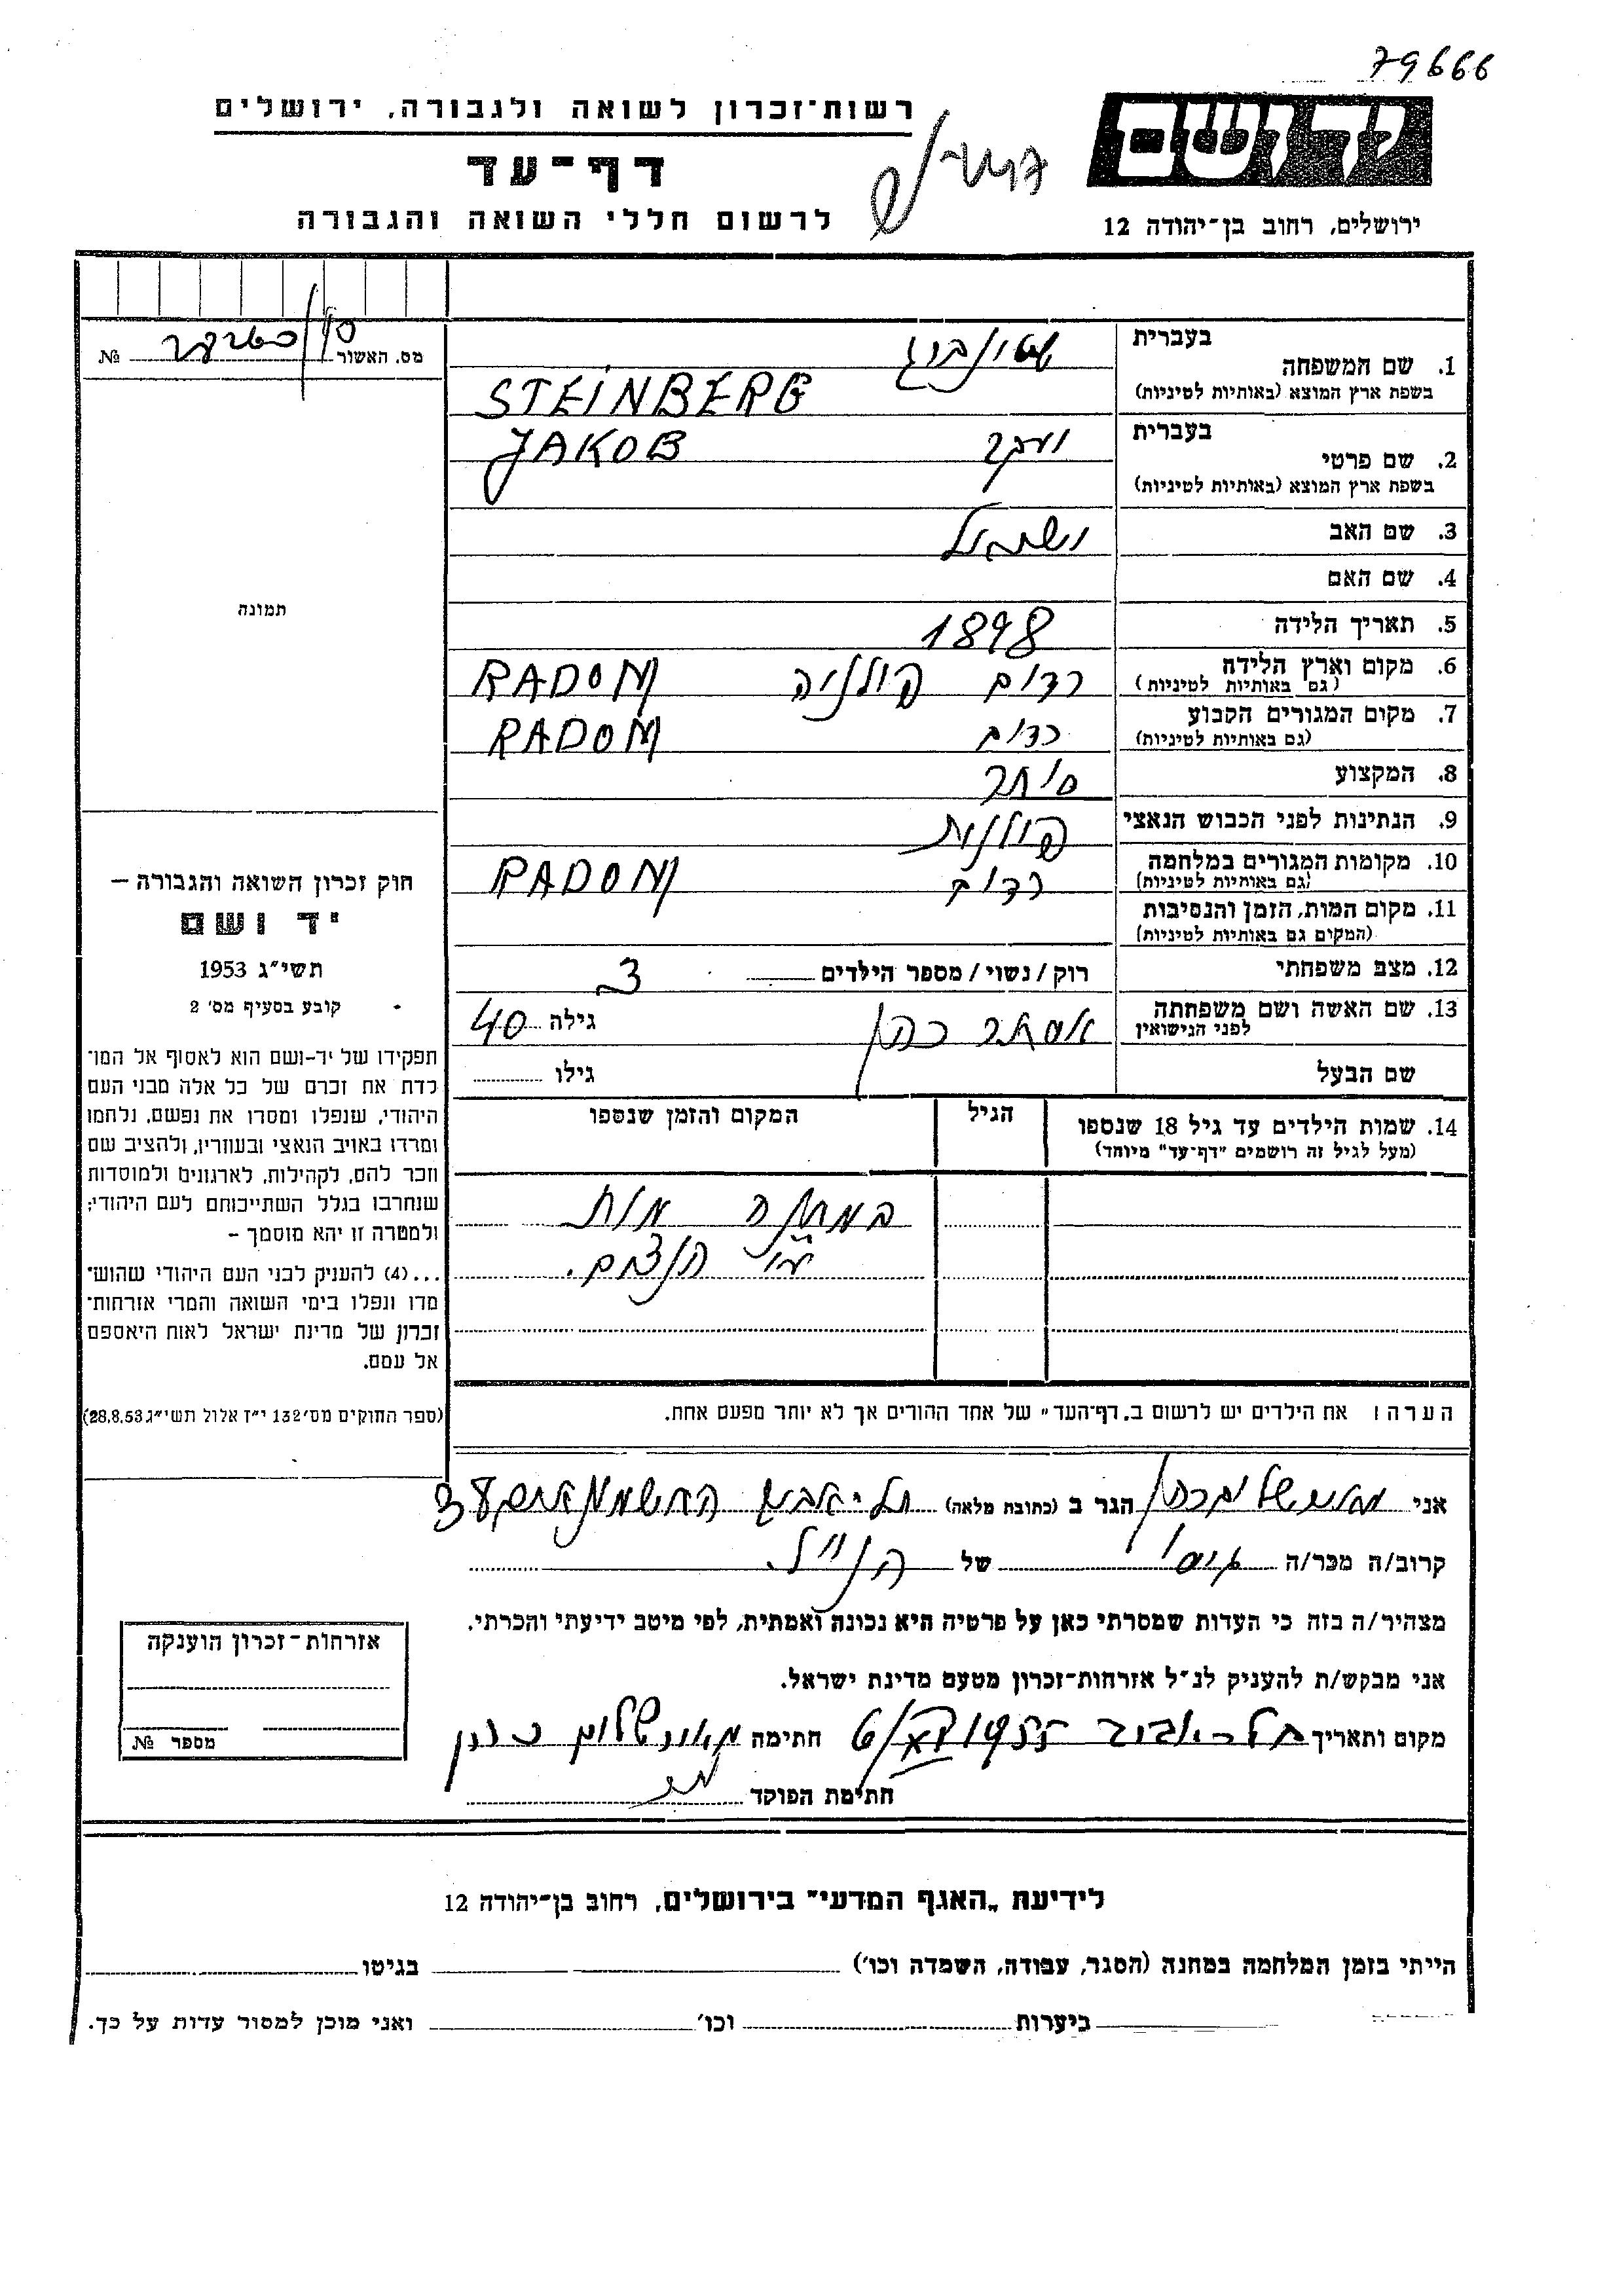 79666
רשות־זכרון לשואה ולגבורה, ירושלים
ידושם
דף־עד
לרשום חללי השואה והגבורה
ירושלים, רחוב בן־יהודה 12
מס. האשור № 
בעברית
1. שם המשפחה
שטינברג
בשפת ארץ המוצא (באותיות לטיניות)
STEINBERG
בעברית
2. שם פרטי
יעקב
בשפת ארץ המוצא (באותיות לטיניות)
JAKOB
3. שם האב ישראל
4. שם האם
5. תאריך הלידה 1898
6. מקום וארץ הלידה רדום פולניה RADOM
(גם באותיות לטיניות)
7. מקום המגורים הקבוע רדום RADOM
(גם באותיות לטיניות)
8. המקצוע סוחר
9. הנתינות לפני הכבוש הנאצי פולנית
10. מקומות המגורים במלחמה רדום RADOM
(גם באותיות לטיניות)
11. מקום המות, הזמן והנסיבות
(המקום גם באותיות לטיניות)
12. מצב משפחתי רוק/נשוי/מספר הילדים 3
13. שם האשה ושם משפחתה אסתר כהן גילה 40
לפני הנישואין
שם הבעל גילו
14. שמות הילדים עד גיל 18 שנספו הגיל המקום והזמן שנספו
(מעל לגיל זה רושמים "דף־עד" מיוחד)
במחנה מות
ע"י הנצים.
הערה: את הילדים יש לרשום ב„דף־העד" של אחד ההורים אך לא יותר מפעם אחת.
תמונה
חוק זכרון השואה והגבורה –
יד ושם
תשי"ג 1953
קובע בסעיף מס׳ 2
תפקידו של יד-ושם הוא לאסוף אל המו־
לדת את זכרם של כל אלה מבני העם
היהודי, שנפלו ומסרו את נפשם, נלחמו
ומרדו באויב הנאצי ובעוזריו, ולהציב שם
וזכר להם, לקהילות, לארגונים ולמוסדות
שנחרבו בגלל השתייכותם לעם היהודי;
ולמטרה זו יהא מוסמך –
...(4) להעניק לבני העם היהודי שהוש־
מדו ונפלו בימי השואה והמרי אזרחות־
זכרון של מדינת ישראל לאות היאספם
אל עמם.
(ספר החוקים מס׳ 132 י"ז אלול תשי"ג 28.8.53)
אני הגר ב (כתובת מלאה) תל־אביב החשמונאים 3
קרוב/ה מכר/ה גיסי של הנ"ל
מצהיר/ה בזה כי העדות שמסרתי כאן על פרטיה היא נכונה ואמתית, לפי מיטב ידיעתי והכרתי.
אני מבקש/ת להעניק לנ"ל אזרחות-זכרון מטעם מדינת ישראל.
מקום ותאריך תל-אביב 1955 חתימה
חתימת הפוקד
אזרחות-זכרון הוענקה
מספר №
לידיעת „האגף המדעי" בירושלים, רחוב בן־יהודה 12
הייתי בזמן המלחמה במחנה (הסגר, עבודה, השמדה וכו׳) בגיטו
ביערות וכו׳ ואני מוכן למסור עדות על כך.